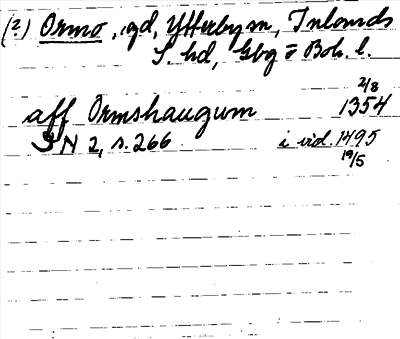 (?) Ormo, gd, Ytterby sn, Inlands
S. hd, Gbg o Boh. l.
2/8
aff Ormshaugum 1354
SN 2, s. 266 i vid. 1495
19/5